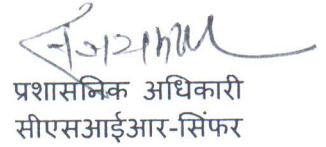 प्रशासनिक अधिकारी
सीएसआईआर-सिंफर